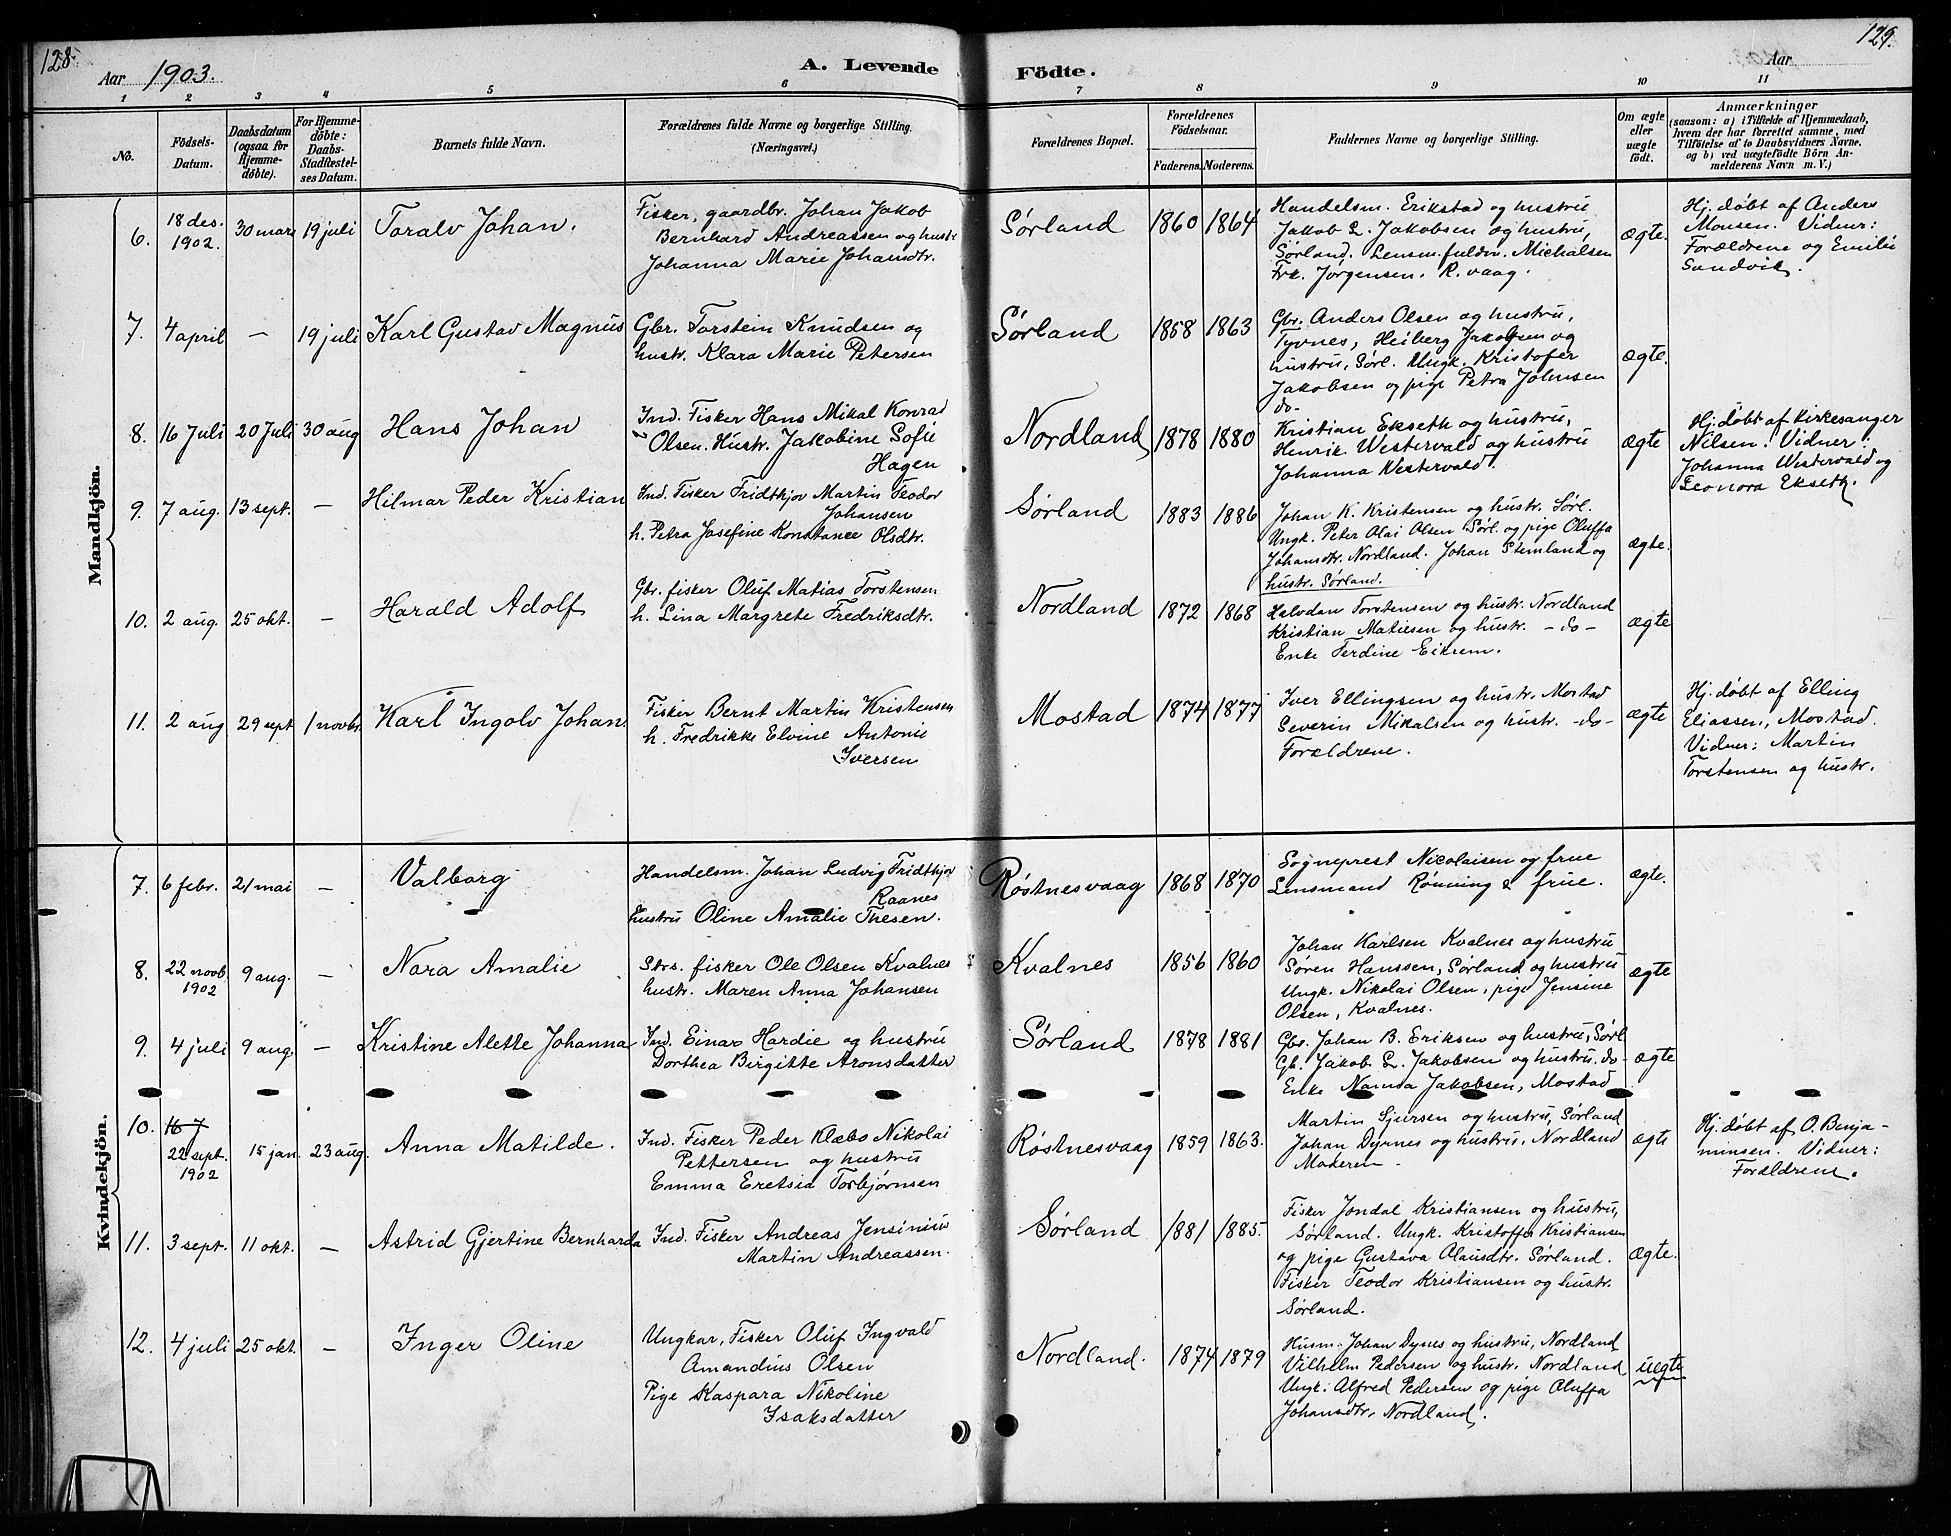 128.
129.
Aar 1903.
A. Levende
Födte.
Aar
1 2 3 4 5 6 7 8 9 10 11
No.
Födsels-
Datum.
Daabsdatum
(ogsaa for
Hjemme-
döbte).
For Hjemme-
döbte:
Daabs-
Stadfæstel-
ses Datum.
Barnets fulde Navn.
Forældrenes fulde Navne og borgerlige Stilling.
(Næringsvei.)
Forældrenes Bopæl.
Forældrenes
Födselsaar.
Faderens. Moderens.
Faddernes Navne og borgerlige Stilling.
Om ægte
eller
uægte
födt.
Anmærkninger
(saasom: a) i Tilfælde af Hjemmedaab,
hvem der har forrettet samme, med
Tilföielse af to Daabsvidners Navne.
og b) ved uægtefödte Börn An-
melderens Navn m. V.)
Mandkjön.
6. 18 des. 1902. 30 mars 19 juli Toralv Johan.
Fisker, gaardbr. Johan Jakob
Bernhard Andreassen og hustr.
Johanna Marie Johansdtr.
Sørland 1860 1864
Handelsm. Erikstad og hustru
Jakob L. Jakobsen og hustru,
Sørland. Lensm.fuldm. Michalsen
Frk. Jørgensen. R. vaag.
ægte.
Hj. døbt af Anders
Monsen. Vidner:
Forældrene og Emilie
Sandvik.
7. 4 april — 19 juli Karl Gustav Magnus
Gbr. Torstein Knudsen og
hustr. Klara Marie Petersen
Sørland 1858 1863
Gbr. Anders Olsen og hustru,
Tyvnes, Heiberg Jakobsen og
hustru, Sørl. Ungk. Kristofer
Jakobsen og pige Petra Johnsen
do.
ægte.
8. 16 Juli 20 Juli 30 aug Hans Johan
Ind. Fisker Hans Mikal Konrad
Olsen. Hustr. Jakobine Sofie
Hagen
Nordland 1878 1880
Kristian Ekseth og hustru,
Henrik Westervald og hustru
Johanna Westervald.
ægte
Hj. døbt af Kirkesanger
Nilsen. Vidner:
Johanna Westervald og
Leonora Ekseth.
9. 7 aug. 13 sept. — Hilmar Peder Kristian
Ind. Fisker Fridtkjov Martin Teodor
Johansen
h. Petra Josefine Konstance Olsdtr.
Sørland 1883 1886
Johan K. Kristensen og hustr. Sørl.
Ungk. Peter Olai Olsen Sørl. og pige Oluffa
Johansdtr. Nordland. Johan Stemland og
hustr. Sørland.
ægte.
10. 2 aug. 25 okt. — Harald Adolf
Gbr. fisker Oluf Matias Torstensen
h. Lina Margrete Fredriksdtr.
Nordland 1872 1868
Halvdan Torstensen og hustr. Nordland
Kristian Matiesen og hustr. — do —
Enke Ferdine Eikrem.
ægte
11. 2 aug 29 sept 1 novbr. Karl Ingolv Johan
Fisker Bernt Martin Kristensen
h. Fredrikke Elvine Antonie
Iversen
Mostad 1874 1877
Iver Ellingsen og hustr. Mostad
Severin Mikalsen og hustr. — do —
Forældrene.
ægte
Hj. døbt af Elling
Eliassen, Mostad.
Vidner: Martin
Torstensen og hustr.
Kvindekjön.
7. 6 febr. 21 mai — Valborg
Handelsm. Johan Ludvig Fridtkjov
Raanes
hustru Oline Amalie Thesen.
Røstnesvaag 1868 1870
Sogneprest Nicolaisen og frue
Lensmand Rønning & frue.
ægte.
8. 22 novb. 1902 9 aug. — Nora Amalie
Strs. fisker Ole Olsen Kvalnes
hustr. Maren Anna Johansen
Kvalnes 1856 1860
Johan Karlsen Kvalnes og hustru
Søren Hanssen, Sørland og hustru
Ungk. Nikolai Olsen, pige Jensine
Olsen, Kvalnes.
ægte
9. 4 juli 9 aug. — Kristine Alette Johanna
Ind. Einar Hardie og hustru
Dorthea Birgitte Aronsdatter
Sørland 1878 1881
Gbr. Johan B. Eriksen og hustru, Sørl
Gb. Jakob L. Jakobsen og hustru. do —
Enke Nanna Jakobsen, Mostad
ægte
10. 16 7
22 sept. 1902 15 jan. 23 aug. Anna Matilde.
Ind. Fisker Peder Klæbo Nikolai
Pettersen og hustru
Emma Eretsia Torbjørnsen
Røstnesvaag 1859 1863.
Martin Sjursen og hustru, Sørland
Johan Dypnes og hustru, Nordland
Moderen —
ægte
Hj. døbt af O. Benja-
minsen. Vidner:
Forældrene.
11. 3 sept. 11 okt. — Astrid Gjertine Bernharda
Ind. Fisker Andreas Jensinius
Martin Andreassen.
Sørland 1881 1885.
Fisker Jondal Kristiansen og hustru,
Sørland. Ungk. Kristoffer Kristiansen
og pige Gustava Olausdtr. Sørland.
Fisker Teodor Kristiansen og hustr.
Sørland.
ægte.
12. 4 juli 25 okt. — Inger Oline
Ungkar, Fisker Oluf Ingvald
Amandius Olsen
Pige Kaspara Nikoline
Isaksdatter
Nordland. 1874 1879
Husm. Johan Dypnes og hustru, Nordland
Vilhelm Pedersen og hustr. Nordland
Ungk. Alfred Pedersen og pige Oluffa
Johansdtr. Nordland.
uegte